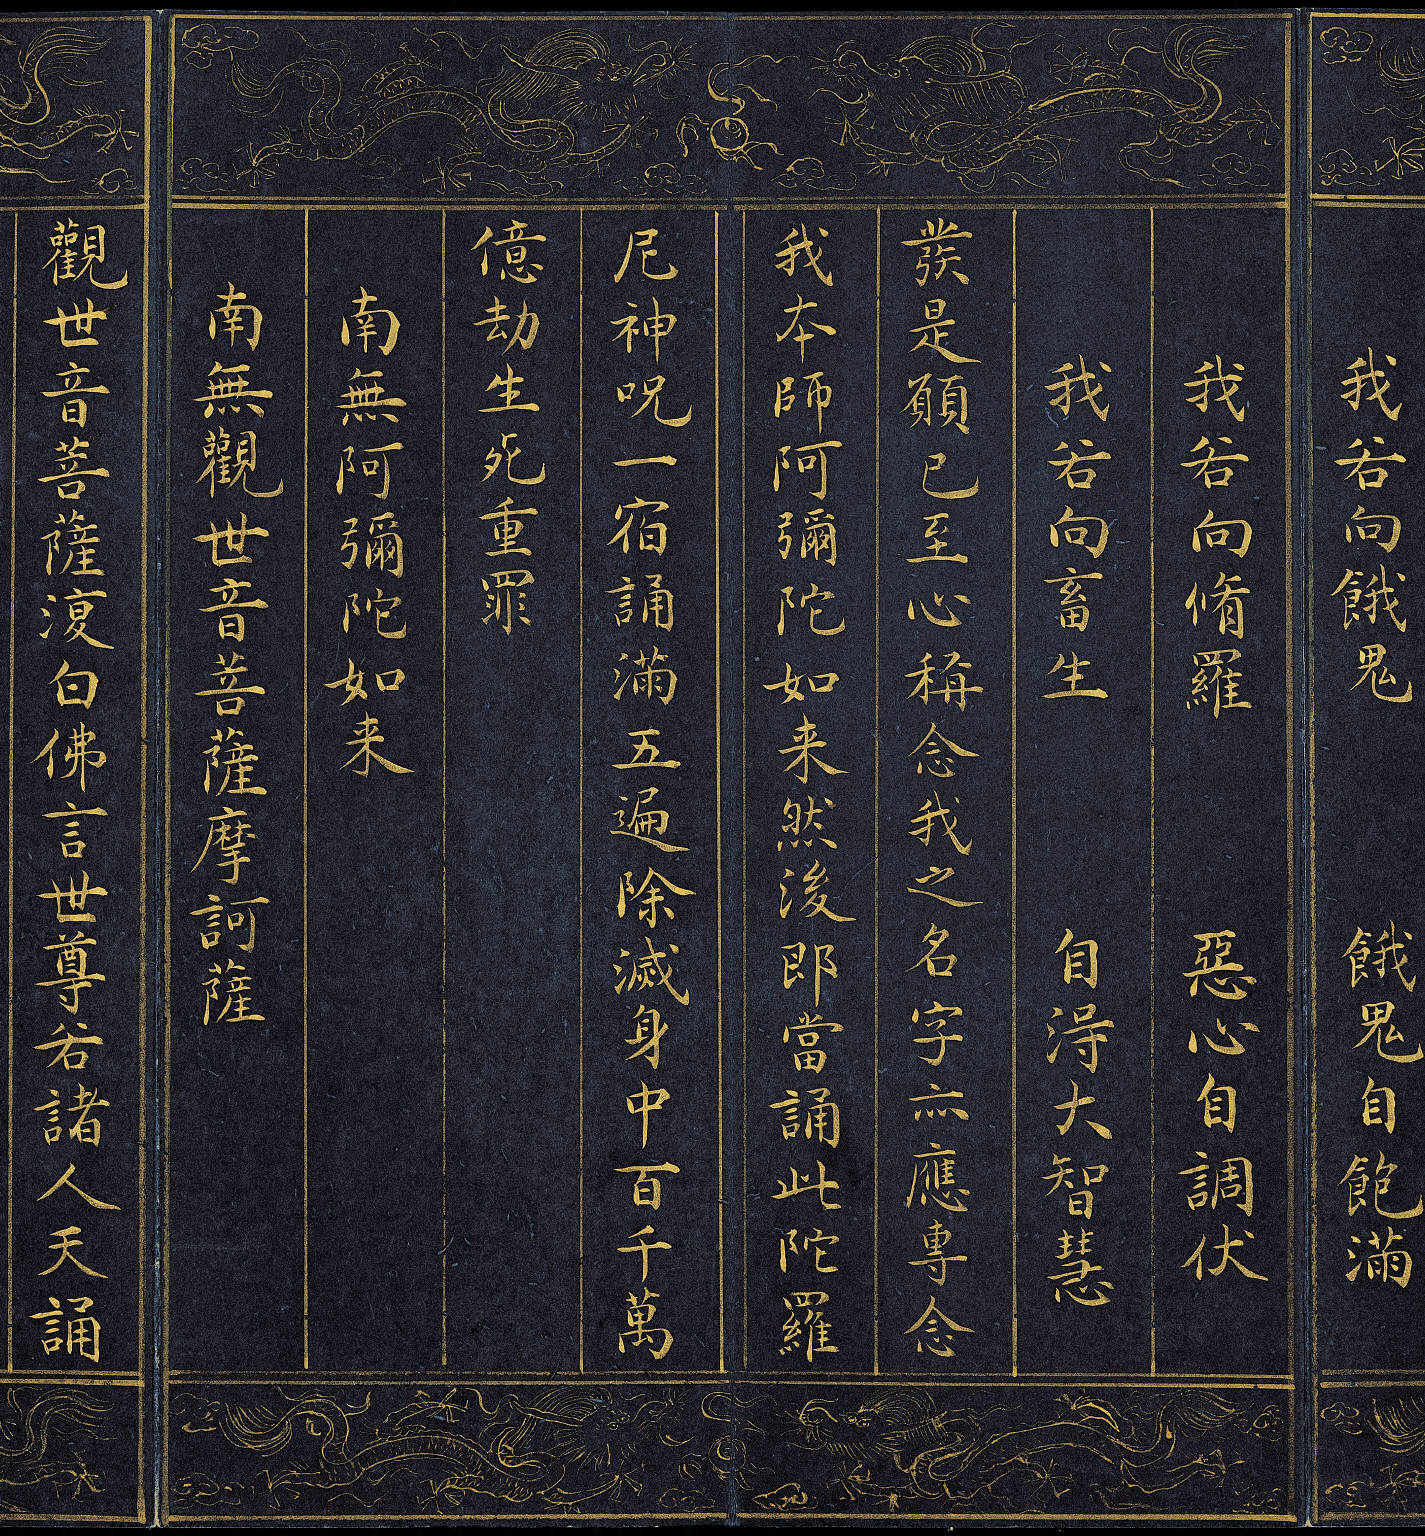 我若向餓鬼　餓鬼自飽滿
我若向脩羅　惡心自調伏
我若向畜生　自得大智慧
發是願已至心稱念我之名字亦應專念
我本師阿彌陀如来然後即當誦此陀羅
尼神呪一宿誦滿五遍除滅身中百千萬
億劫生死重罪
南無阿彌陀如来
南無觀世音菩薩摩訶薩
觀世音菩薩復白佛言世尊若諸人天誦